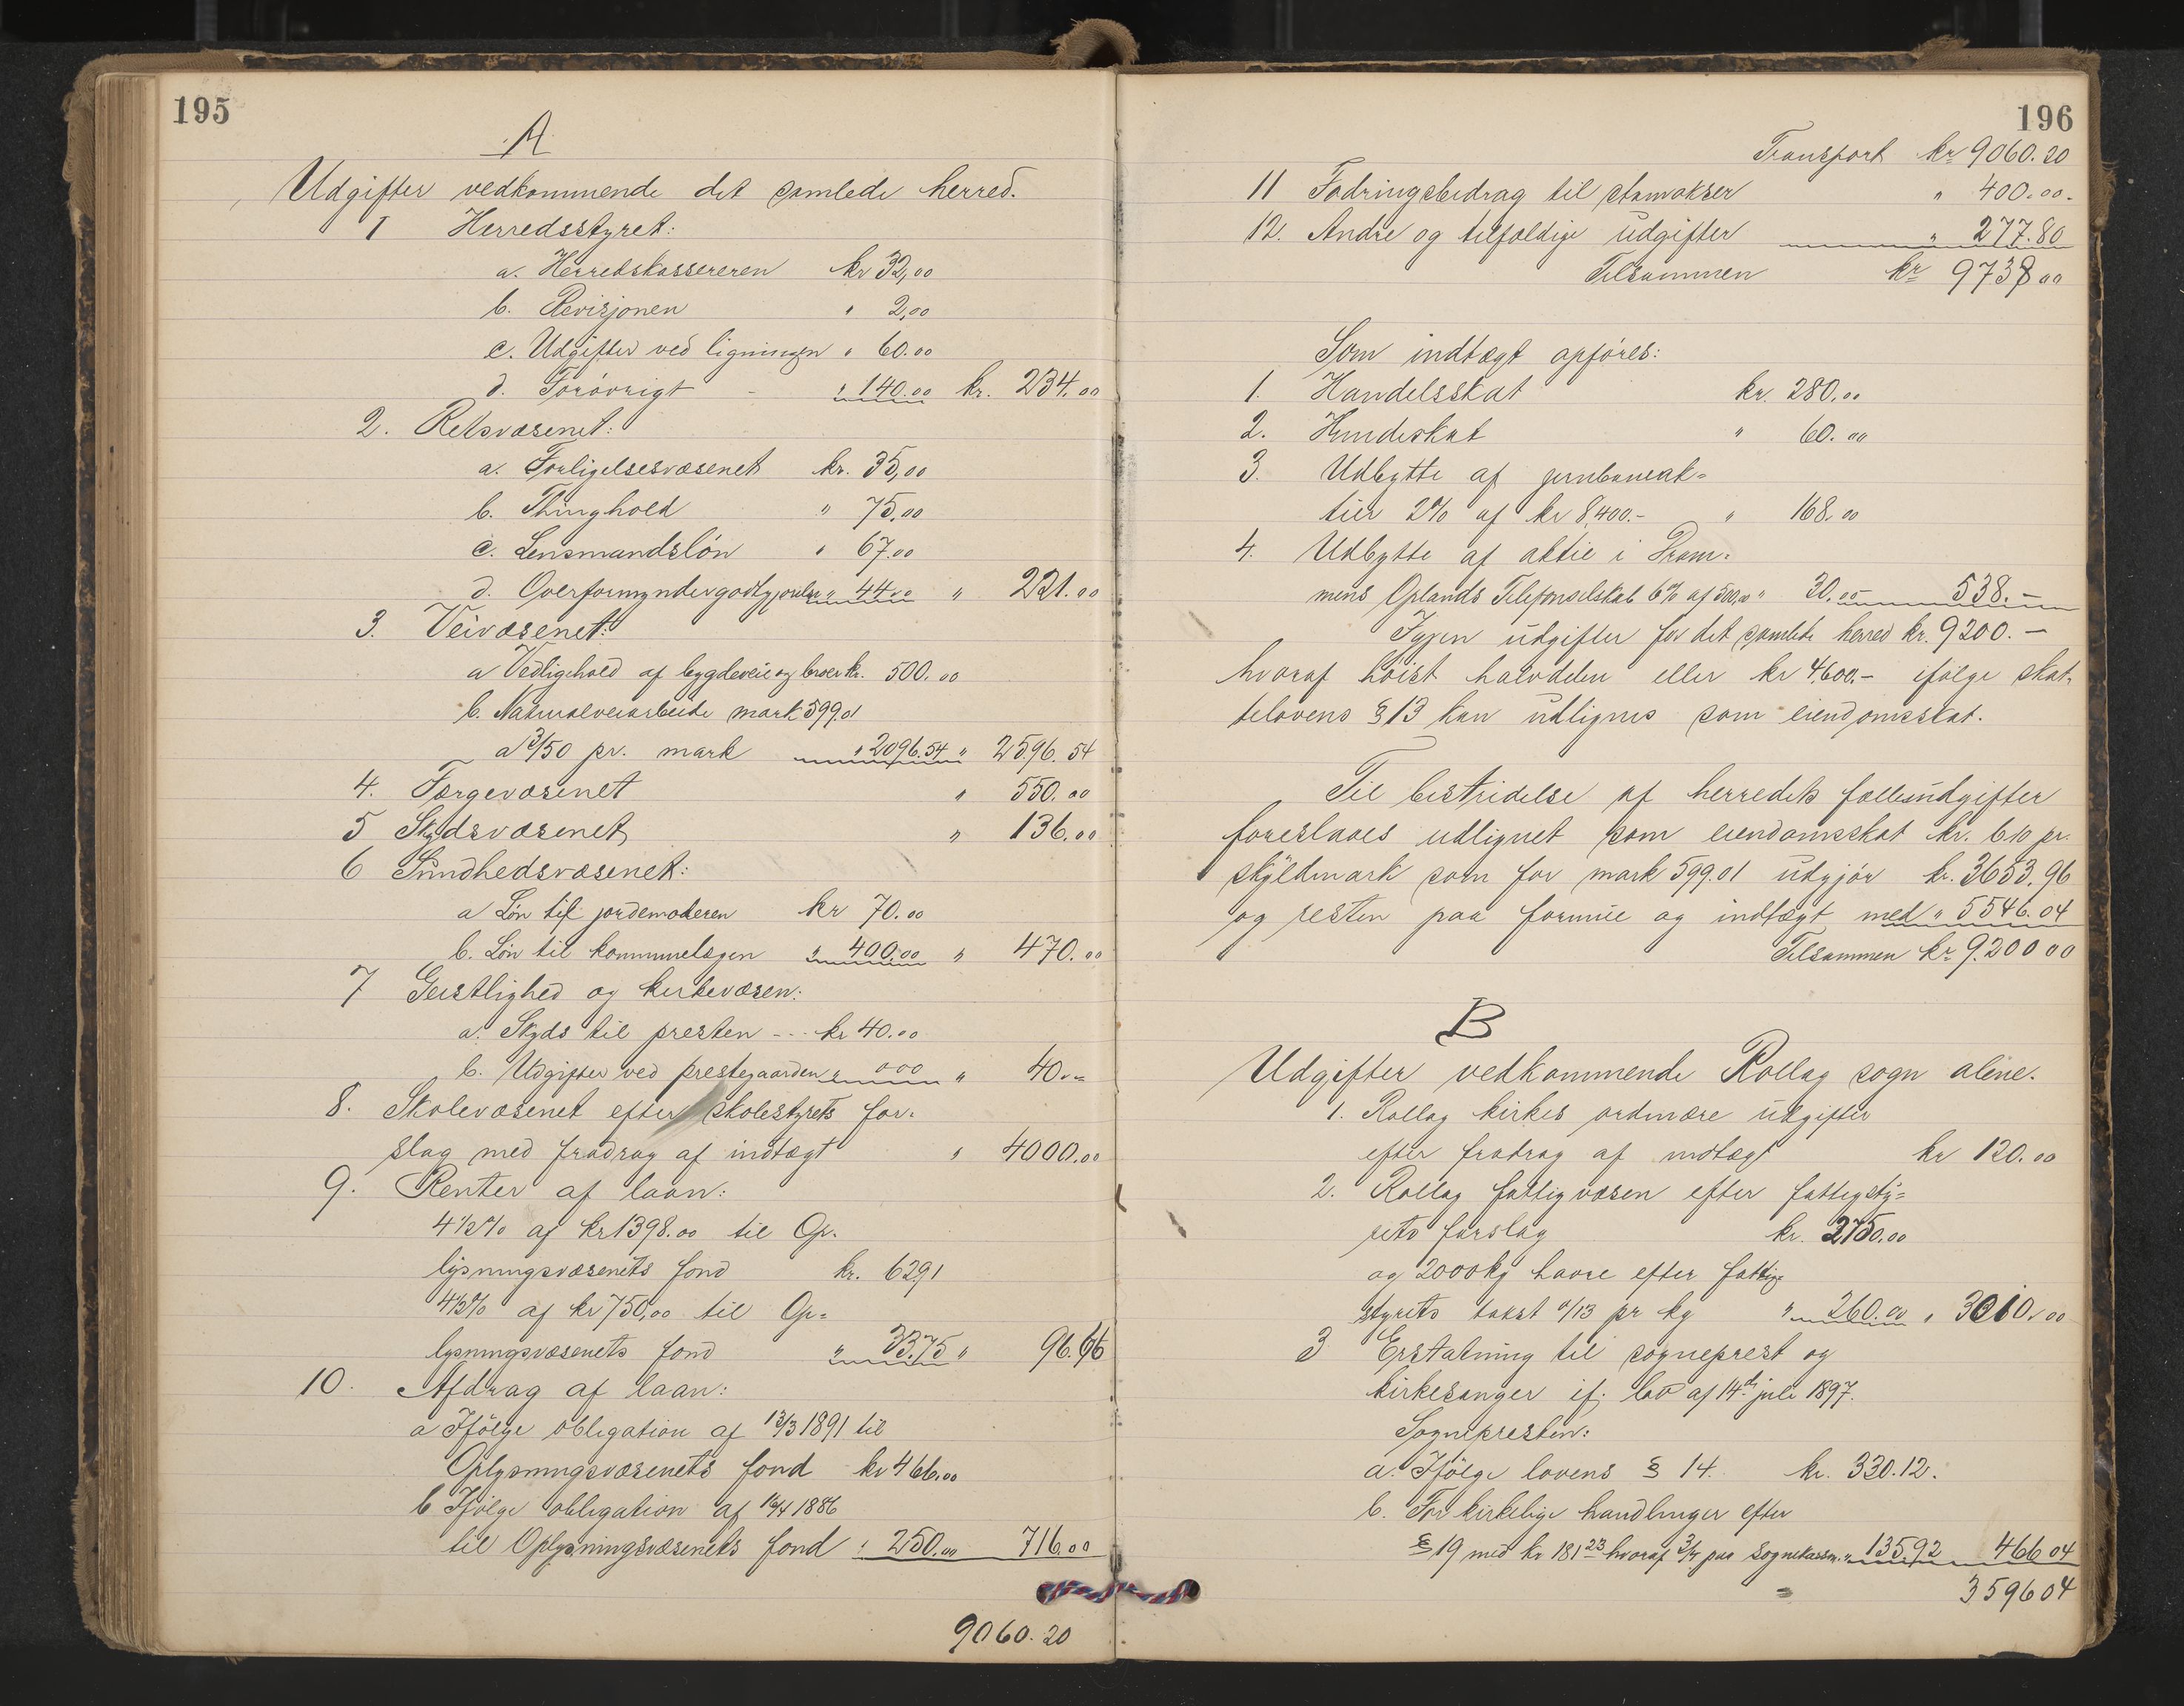 195
A
Udgifter vedkommende det samlede herred.
1 Herredsstyret:
a. Herredskassereren kr 32,00
b. Revisjonen " 2,00
c. Udgifter ved ligningen " 60.00
d. Forøvrigt - " 140.00 kr. 234.00
2. Retsvæsenet:
a. Forligelsesvæsenet kr. 35,00
b. Thinghold " 75,00
c. Lensmandsløn " 67.00
d. Overformyndergodtgjørelse " 44.00 " 221.00
3. Veivæsenet:
a Vedligehold af bygdeveie og broer kr. 500.00
b. Naturalveiarbeide mark 599.01
a 3/50 pr. mark " 2096.54 " 2596.54
4. Færgevæsenet " 550.00
5 Skydsvæsenet " 136.00
6 Sundhedsvæsenet:
a Løn til jordemoderen kr 70.00
b. Løn til kommunelægen " 400.00 " 470.00
7 Geistlighed og kirkevæsen:
a. Skyds til presten --- kr 40.00
b. Udgifter ved prestegaarden " 000 " 40.-
8. Skolevæsenet efter skolestyrets for-
slag med fradrag af indtægt " 4000.00
9. Renter af laan:
4½% af kr 1398.00 til Op-
lysningsvæsenets fond kr. 62,91
4½% af kr 750,00 til Op=
lysningsvæsenets fond " 33.75 " 96.66
10. Afdrag af laan:
a Ifølge obligation af 13/3 1891 til
Oplysningsvæsenets fond kr 466.00
b Ifølge obligation af 16/4 1886
til Oplysningsvæsenets fond " 250.00 716.00
9060.20
196
Transport kr 9060.20
11 Fodringsbidrag til stamokser " 400.00.
12. Andre og tilfældige udgifter " 277.80
Tilsammen kr 9738 00
Som indtægt opføres:
1. Handelsskat kr. 280.00
2. Hundeskat " 60.00
3. Udbytte af jernbaneak=
tier 2% af kr 8,400.- " 168.00
4. Udbytte af aktie i Dram-
mens Oplands Telefonselskab 6% af 500,00 " 30.00 538.-
Igjen udgifter for det samlede herred kr. 9200.-
hvoraf høist halvdelen eller kr 4,600.- ifølge skat-
telovens § 13 kan udlignes som eiendomsskat.
Til bestridelse af herredets fællesudgifter
foreslaaes udlignet som eiendomsskat kr. 6.10 pr.
skyldmark som for mark 599.01 udgjør kr. 3653.96
og resten paa formue og indtægt med " 5546.04
Tilsammen kr 9.200 00
B
Udgifter vedkommende Rollag sogn alene.
1. Rollag kirkes ordinære udgifter
efter fradrag af indtægt kr 120.00
2. Rollag fattigvæsen efter fattigsty=
rets forslag kr. 2750.00
og 2000 kg havre efter fattig-
styrets takst a/13 pr kg " 260.00 " 3010.00
3 Erstatning til sogneprest og
kirkesanger if. lov af 14de juli 1897.
Sognepresten:
a. Ifølge lovens § 14. kr. 330.12.
b. For kirkelige handlinger efter
§ 19 med kr 181 23 hvoraf 3/4 paa sognekassen " 135,92 466 04
3596 04